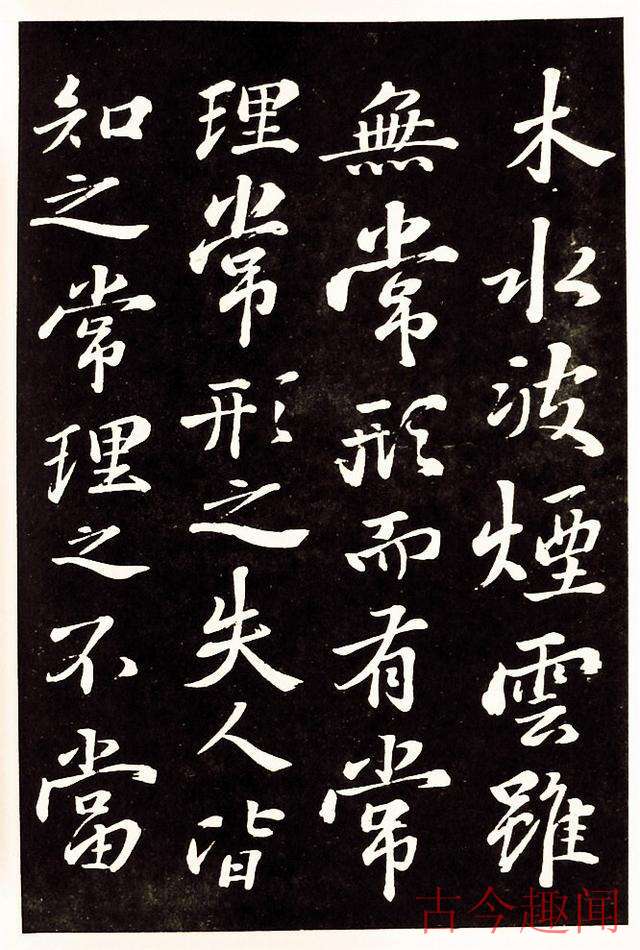 木水波煙雲雖
無常形而有常
理常形之失人皆
知之常理之不當
古今趣闻